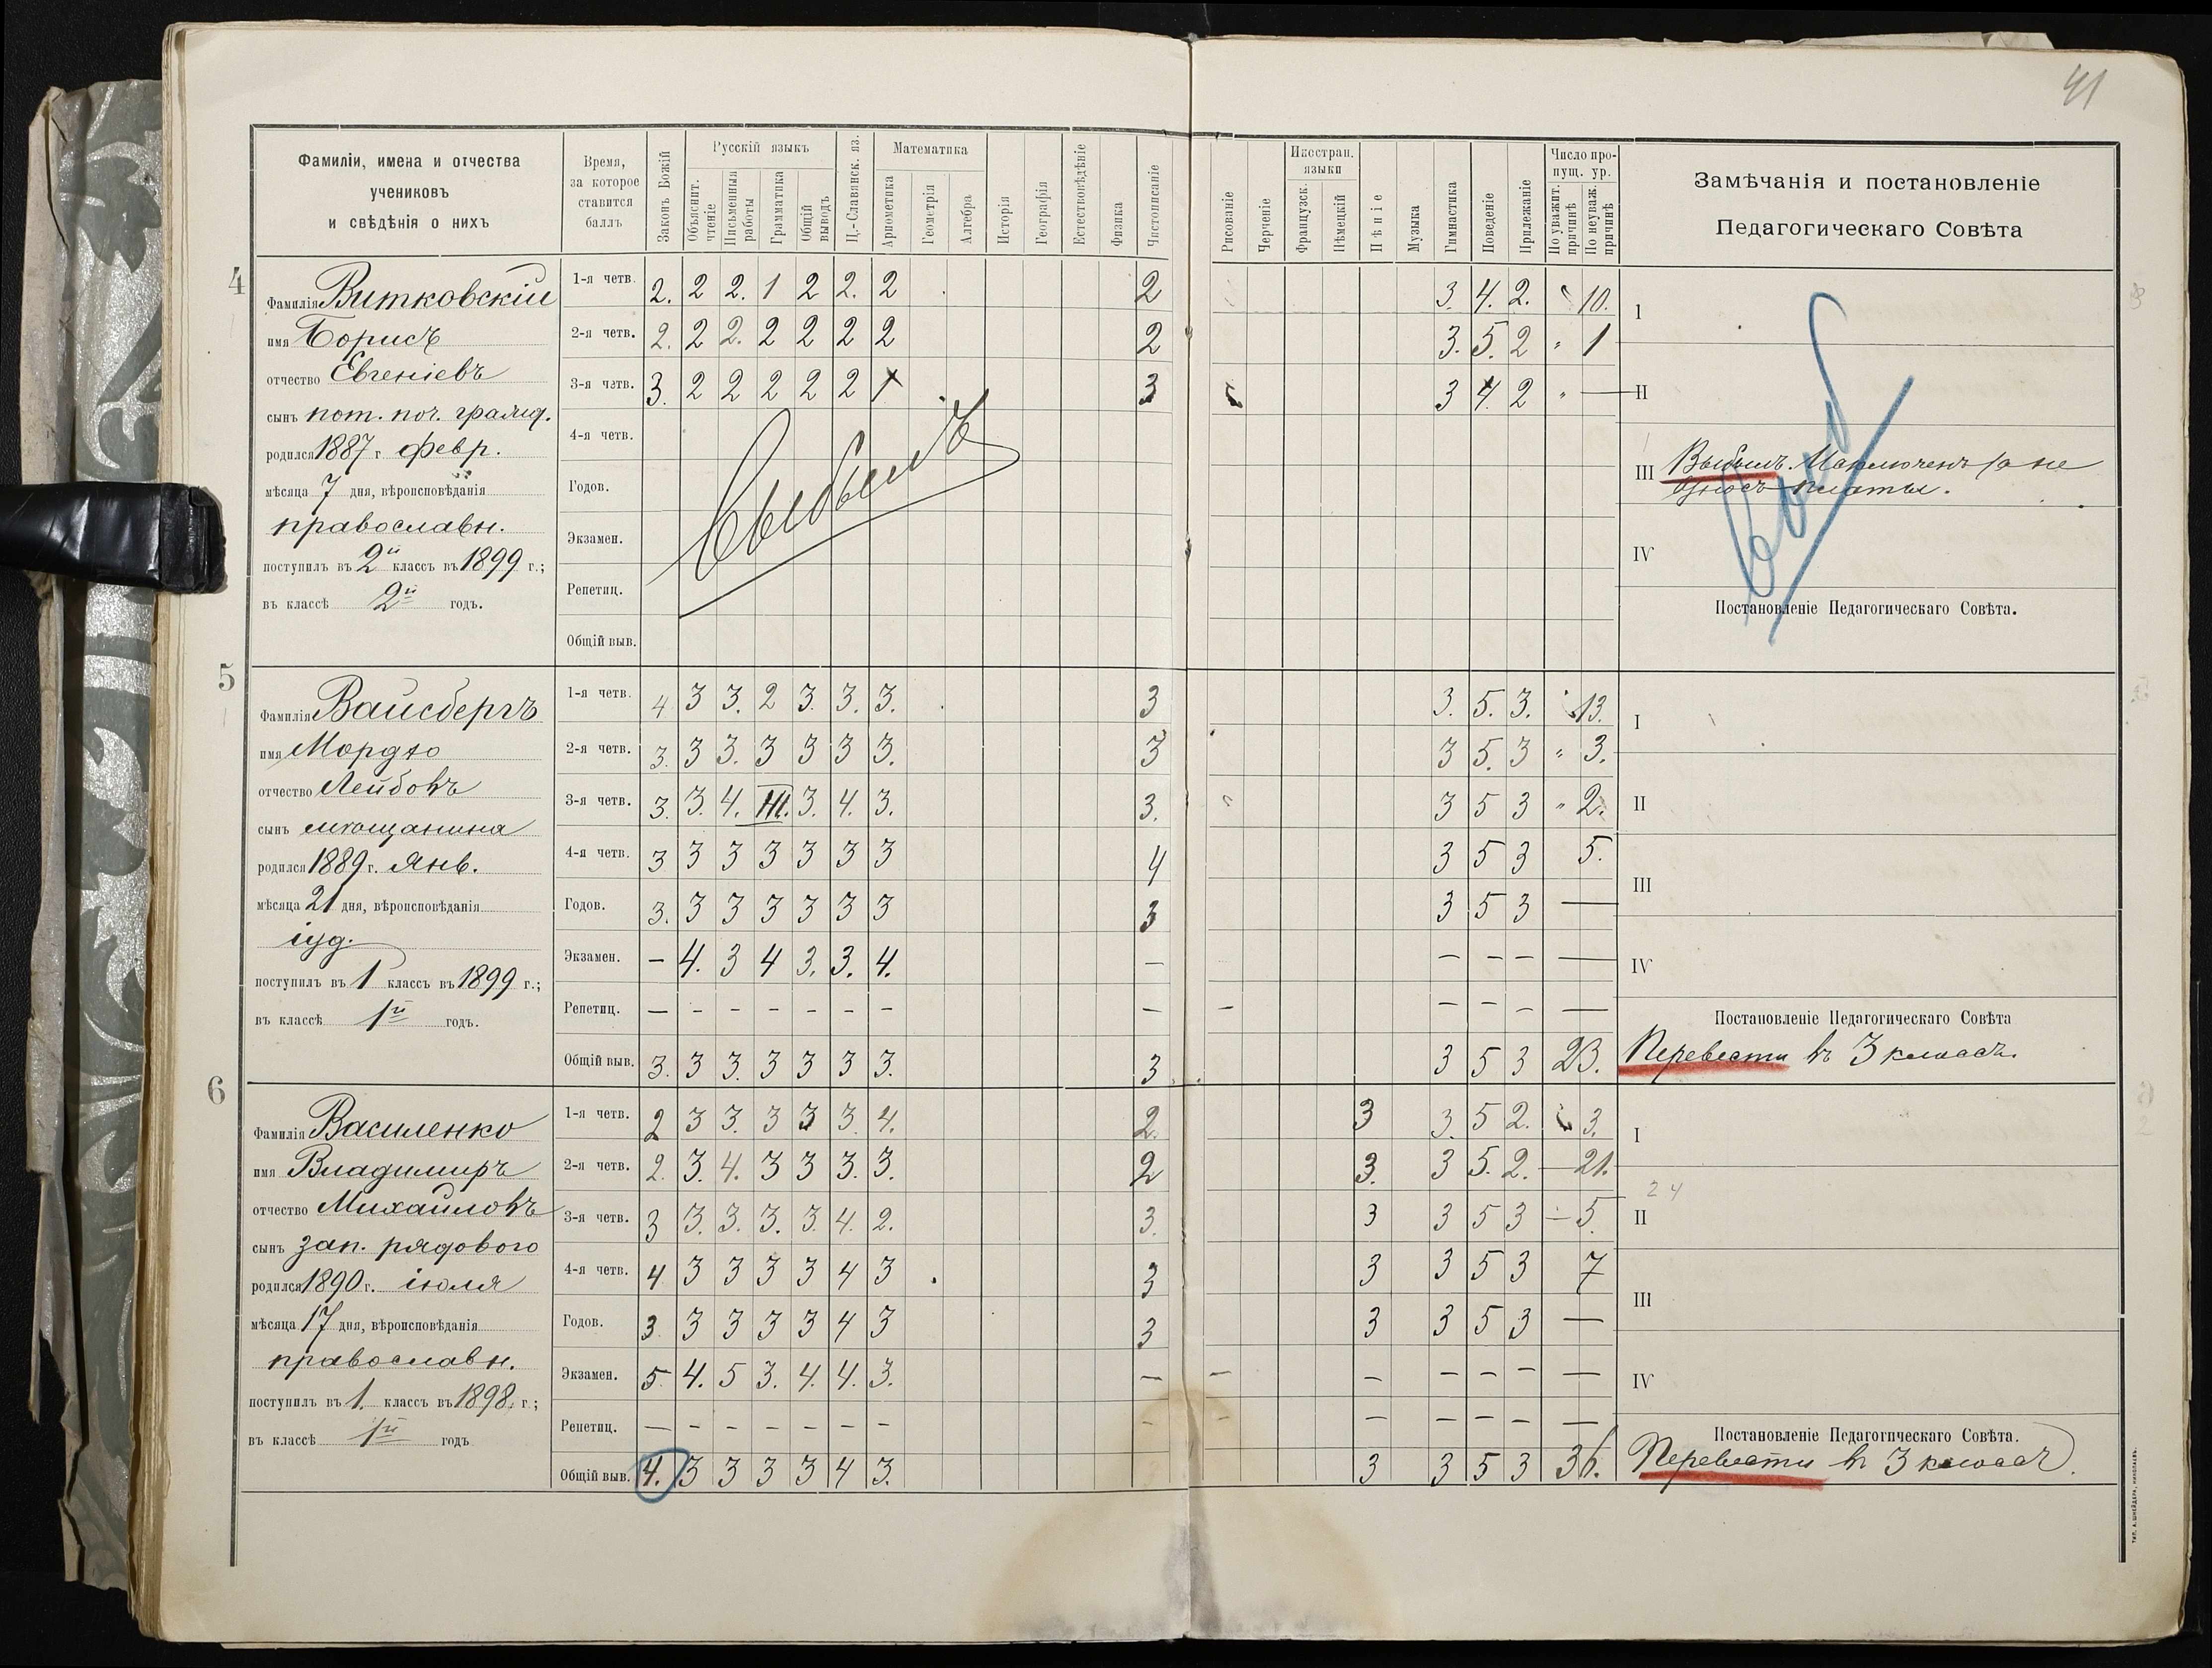 41
Фамиліи, имена и отчества
учениковъ
и свѣдѣнія о нихъ
Время,
за которое
ставится
баллъ
Законъ Божій
Русскій языкъ
Объяснит.
чтеніе
Письменныя
работы
Грамматика
Общій
выводъ
Ц.-Славянск. яз.
Математика
Ариѳметика
Геометрія
Алгебра
Исторія
Географія
Естествовѣдѣніе
Физика
Чистописаніе
Рисованіе
Черченіе
Иностран.
языки
Французск.
Нѣмецкій
Пѣніе
Музыка
Гимнастика
Поведеніе
Прилежаніе
Число про-
пущ. ур.
По уважит.
причинѣ
По неуваж.
причинѣ
Замѣчанія и постановленіе
Педагогическаго Совѣта
4
Фамилія Витковскій
имя Борисъ
отчество Евгеніевъ
сынъ пот. поч. гражд.
родился 1887 г. февр.
мѣсяца 7 дня, вѣроисповѣданія
православн.
поступилъ въ 2й классъ въ 1899 г.;
въ классѣ 2й годъ.
1-я четв. 2. 2 2. 1 2 2. 2 2 3. 4. 2. " 10.
2-я четв. 2. 2 2. 2 2 2 2 2 3. 5. 2 " 1
3-я четв. 3. 2 2 2 2 2 1 3 3 4. 2 " —
4-я четв.
Годов.
Экзамен.
Репетиц.
Общій выв.
Выбылъ
I
II
III Выбылъ. Исключенъ за не
взносъ платы.
IV
Постановленіе Педагогическаго Совѣта.
5
Фамилія Вайсбергъ
имя Мордко
отчество Лейбовъ
сынъ мѣщанина
родился 1889 г. Янв.
мѣсяца 21 дня, вѣроисповѣданія
іуд.
поступилъ въ 1 классъ въ 1899 г.;
въ классѣ 1й годъ.
1-я четв. 4 3 3. 2 3. 3. 3. 3 3. 5. 3. 13.
2-я четв. 3. 3 3. 3 3 3 3. 3 3 5. 3 " 3.
3-я четв. 3. 3. 4. III. 3. 4. 3. 3. 3 5 3 " 2.
4-я четв. 3 3 3 3 3 3 3 4 3 5 3 5.
Годов. 3. 3 3 3 3 3 3 3 3 5 3 —
Экзамен. — 4. 3 4 3. 3. 4. — — — — —
Репетиц. — - - - - - - — — — — — —
Общій выв. 3. 3 3. 3 3 3 3. 3 3 5 3 23.
I
II
III
IV
Постановленіе Педагогическаго Совѣта
Перевести въ 3 классъ.
6
Фамилія Василенко
имя Владимиръ
отчество Михайловъ
сынъ зап. рядового
родился 1890 г. іюля
мѣсяца 17 дня, вѣроисповѣданія
православн.
поступилъ въ 1. классъ въ 1898. г.;
въ классѣ 1й годъ
1-я четв. 2 3 3. 3 3 3. 4. 2. 3 3. 5 2. 3.
2-я четв. 2. 3. 4. 3 3 3. 3. 2 3. 3 5. 2. — 21.
3-я четв. 3 3. 3. 3. 3. 4. 2. 3. 3 3 5 3 — 5
4-я четв. 4 3 3 3 3 4 3 3 3 3 5 3 7
Годов. 3. 3 3 3 3 4 3 3 3 3 5 3 —
Экзамен. 5 4. 5 3. 4. 4. 3. — — — — — — —
Репетиц. — - - - - - - - - — — — — —
Общій выв. 4. 3 3 3 3 4 3. 3 3 5 3 36.
I
24
II
III
IV
Постановленіе Педагогическаго Совѣта.
Перевести въ 3 классъ.